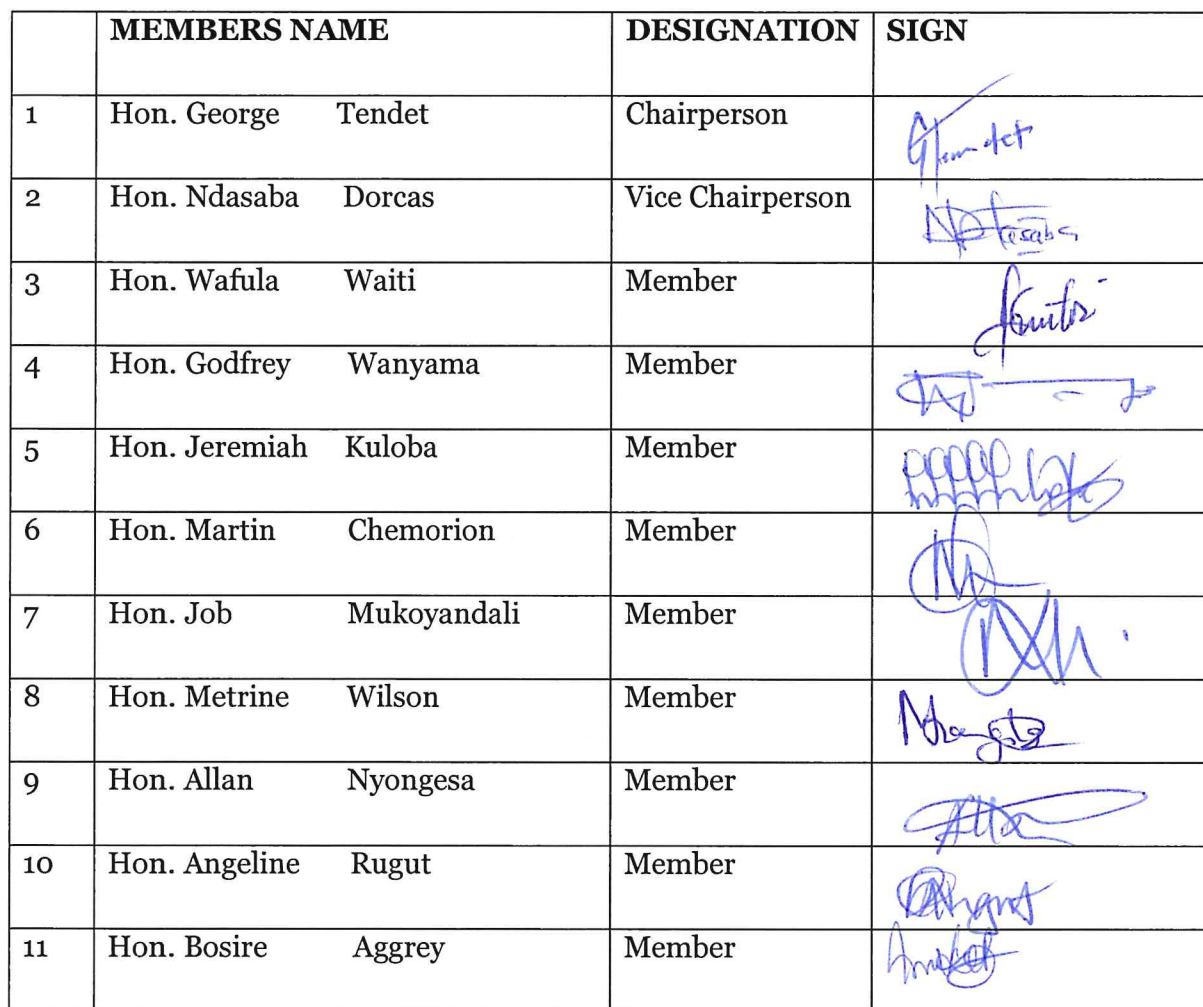 MEMBERS NAME DESIGNATION SIGN
1 Hon. George Tendet Chairperson
2 Hon. Ndasaba Dorcas Vice Chairperson
3 Hon. Wafula Waiti Member
4 Hon. Godfrey Wanyama Member
5 Hon. Jeremiah Kuloba Member
6 Hon. Martin Chemorion Member
7 Hon. Job Mukoyandali Member
8 Hon. Metrine Wilson Member
9 Hon. Allan Nyongesa Member
10 Hon. Angeline Rugut Member
11 Hon. Bosire Aggrey Member